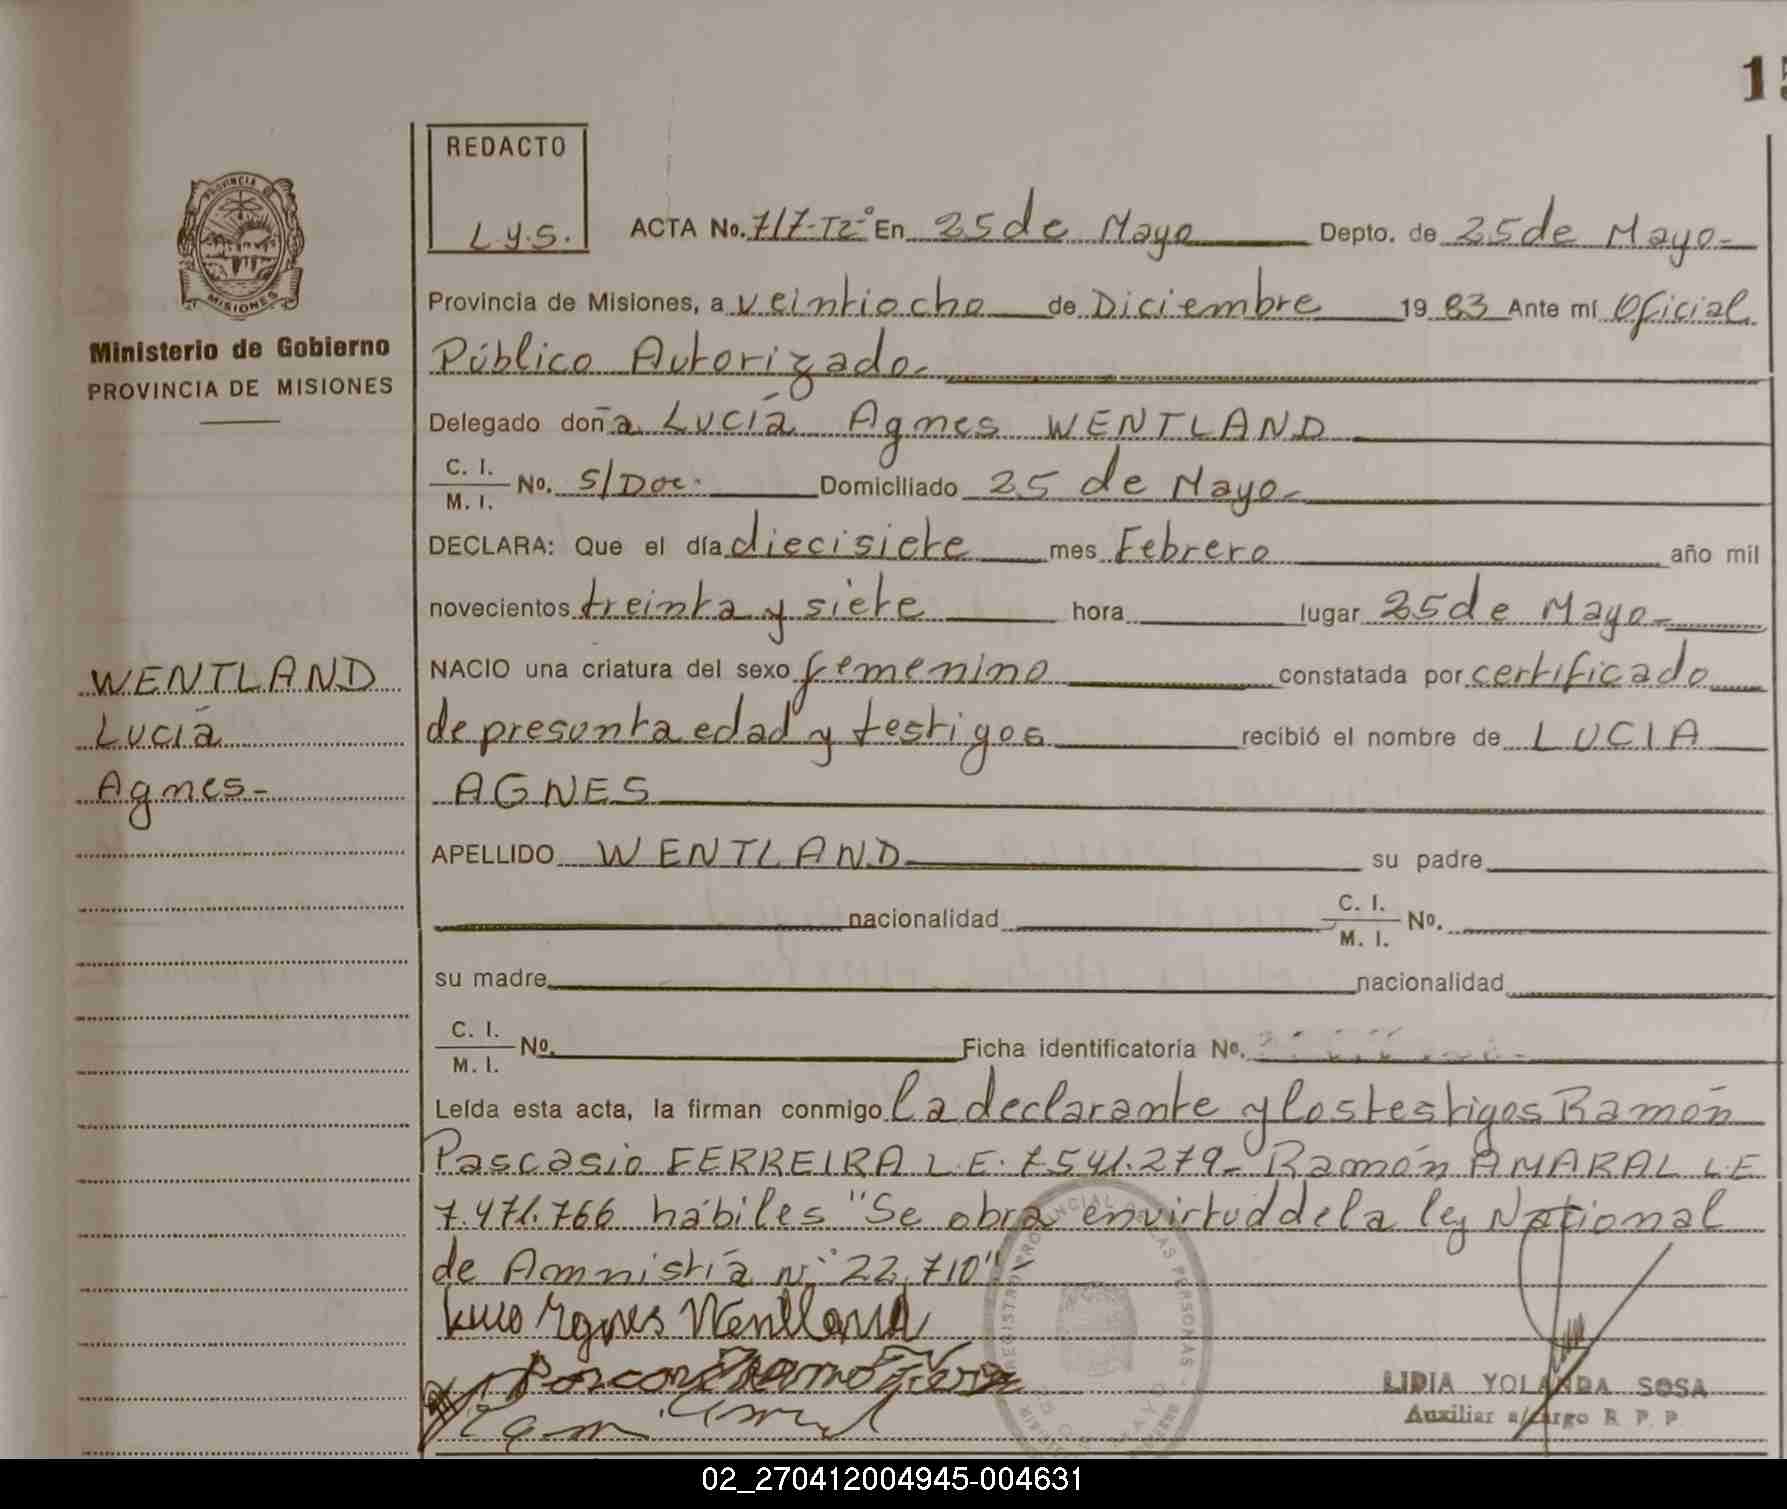 15
REDACTO
L.Y.S.
ACTA No. 717-T2° En 25 de Mayo Depto. de 25 de Mayo-
PROVINCIA DE
MISIONES
Provincia de Misiones, a veintiocho de Diciembre 19 83 Ante mí Oficial
Ministerio de Gobierno
PROVINCIA DE MISIONES
Público Autorizado-
Delegado doña Lucía Agnes WENTLAND
C. I.
M. I.
No. S/Doc. Domiciliado 25 de Mayo-
DECLARA: Que el día diecisiete mes Febrero año mil
novecientos treinta y siete hora lugar 25 de Mayo-
WENTLAND
Lucía
Agnes-
NACIO una criatura del sexo femenino constatada por certificado
de presunta edad y testigos recibió el nombre de LUCIA
AGNES
APELLIDO WENTLAND su padre
nacionalidad C. I.
M. I. No.
su madre nacionalidad
C. I.
M. I. No. Ficha identificatoria No.
Leída esta acta, la firman conmigo la declarante y los testigos Ramón
Pascasio FERREIRA L.E. 7.541.279- Ramón AMARAL L.E
7.471.766 hábiles "Se obra en virtud de la ley National
de Amnistía n° 22.710"-
Agnes Wentland
REGISTRO PROVINCIAL DE LAS PERSONAS
LIDIA YOLANDA SOSA
Auxiliar a/cargo R P P
02_270412004945-004631